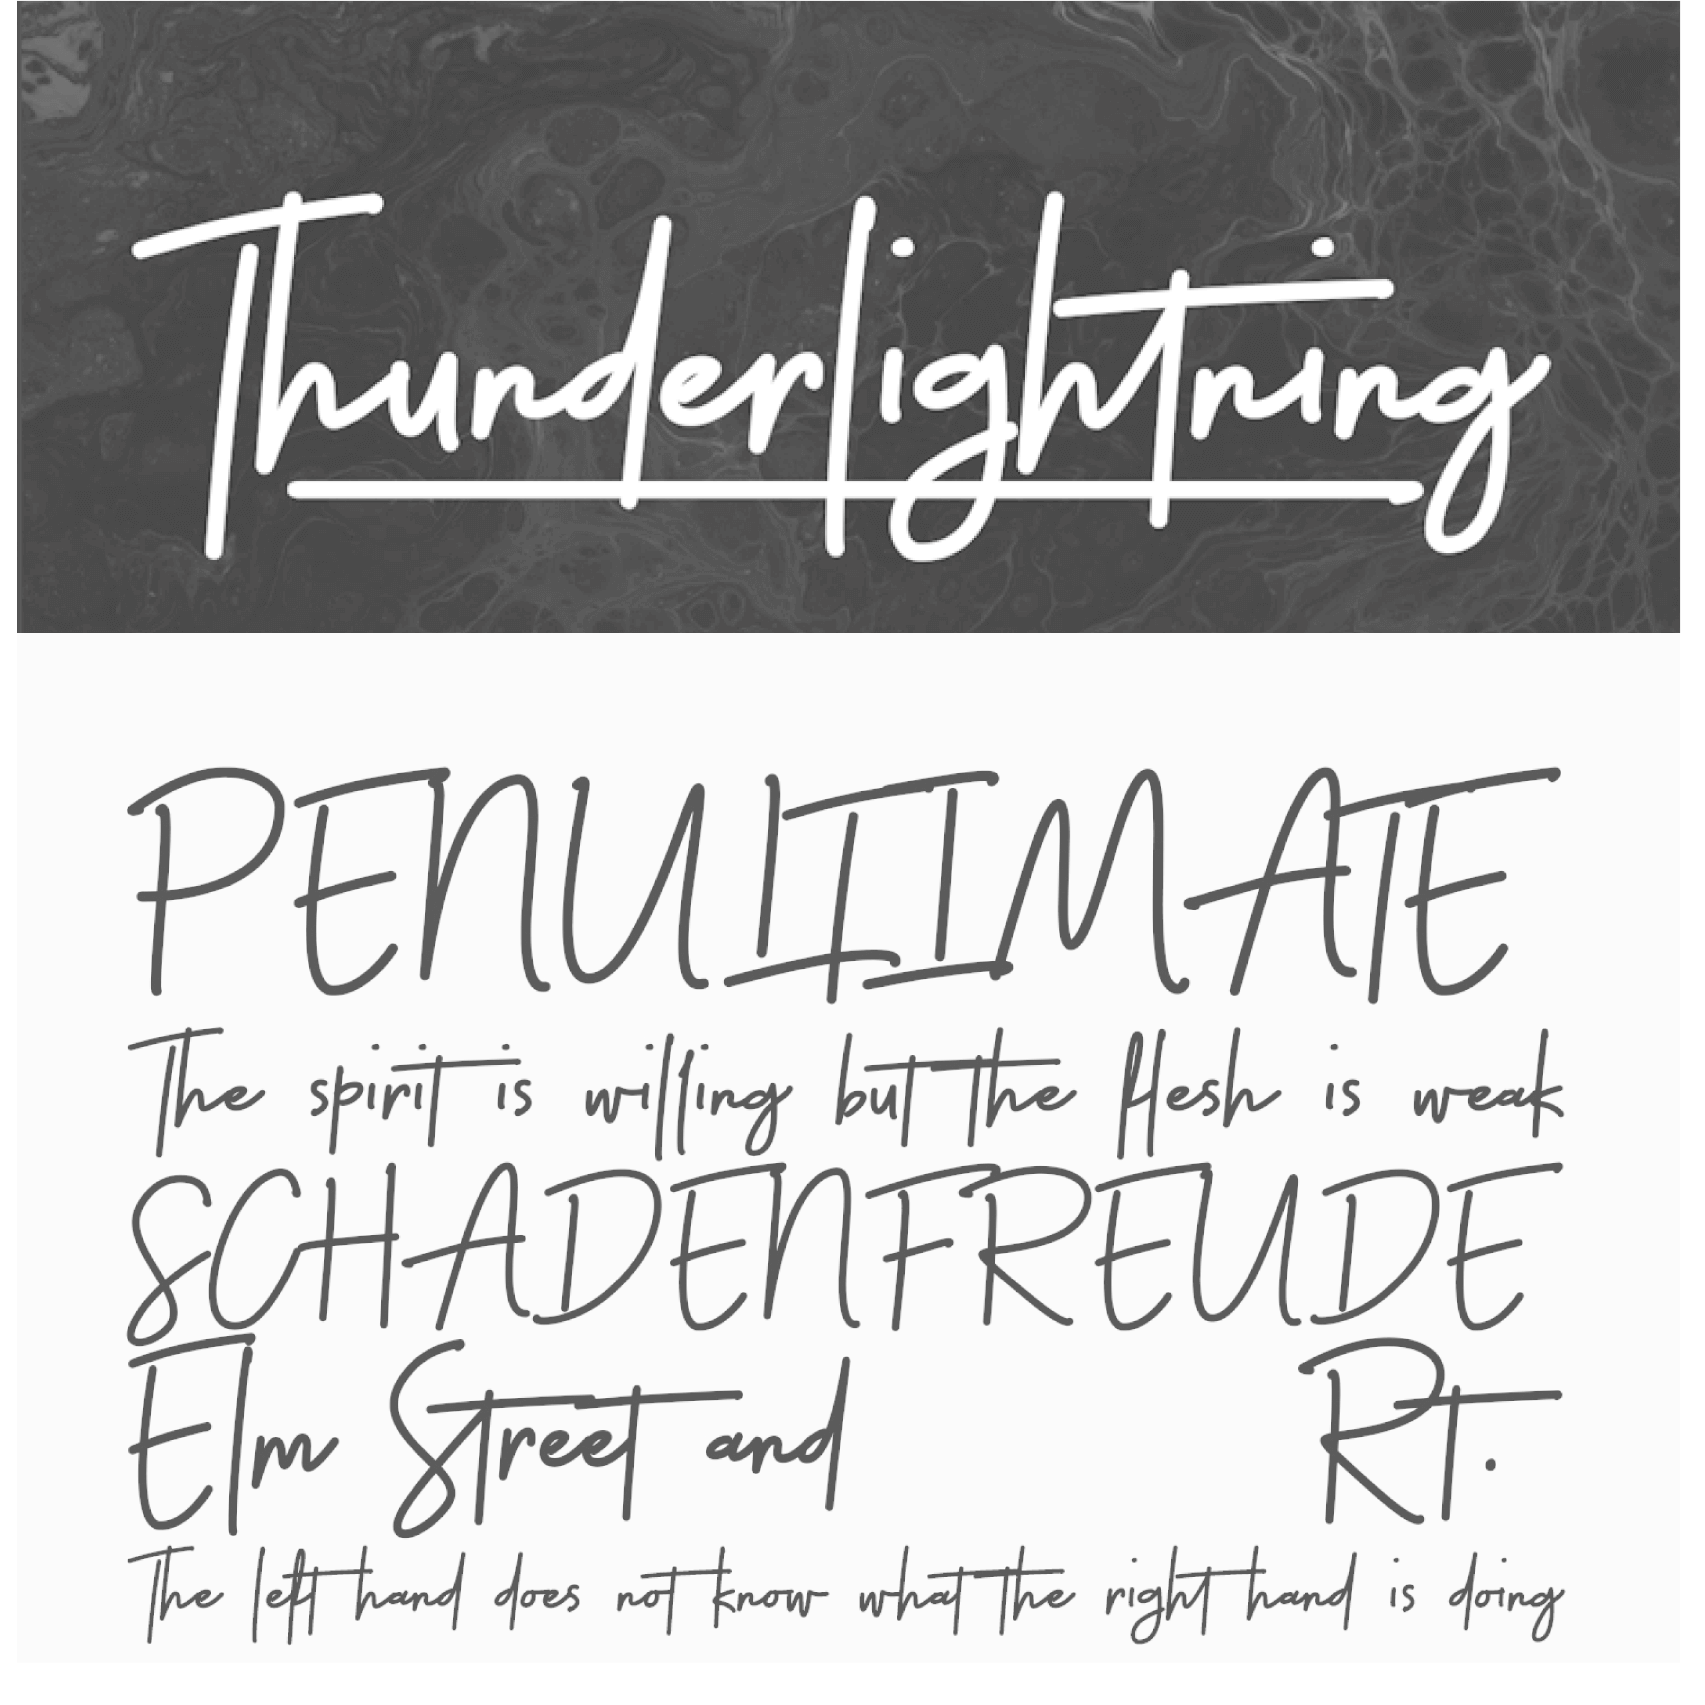 Thunderlightning
PENULTIMATE
The spirit is willing but the flesh is weak
SCHADENFREUDE
Elm Street and Rt.
The left hand does not know what the right hand is doing